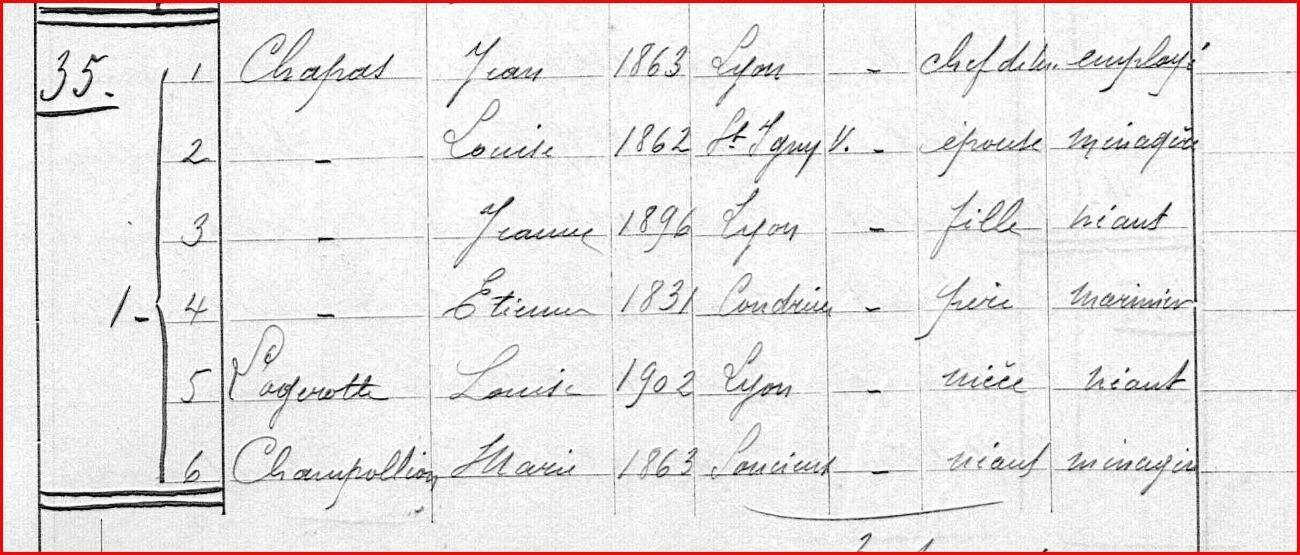 35. 1 Chapas Jean 1863 Lyon - chef de m. employé
2 - Louise 1862 St Igny V. - épouse ménagère
3 - Jeanne 1896 Lyon - fille néant
1 - 4 - Etienne 1831 Condrieu - père marinier
5 Louise 1902 Lyon - nièce néant
6 Champollion Marie 1863 - néant ménagère